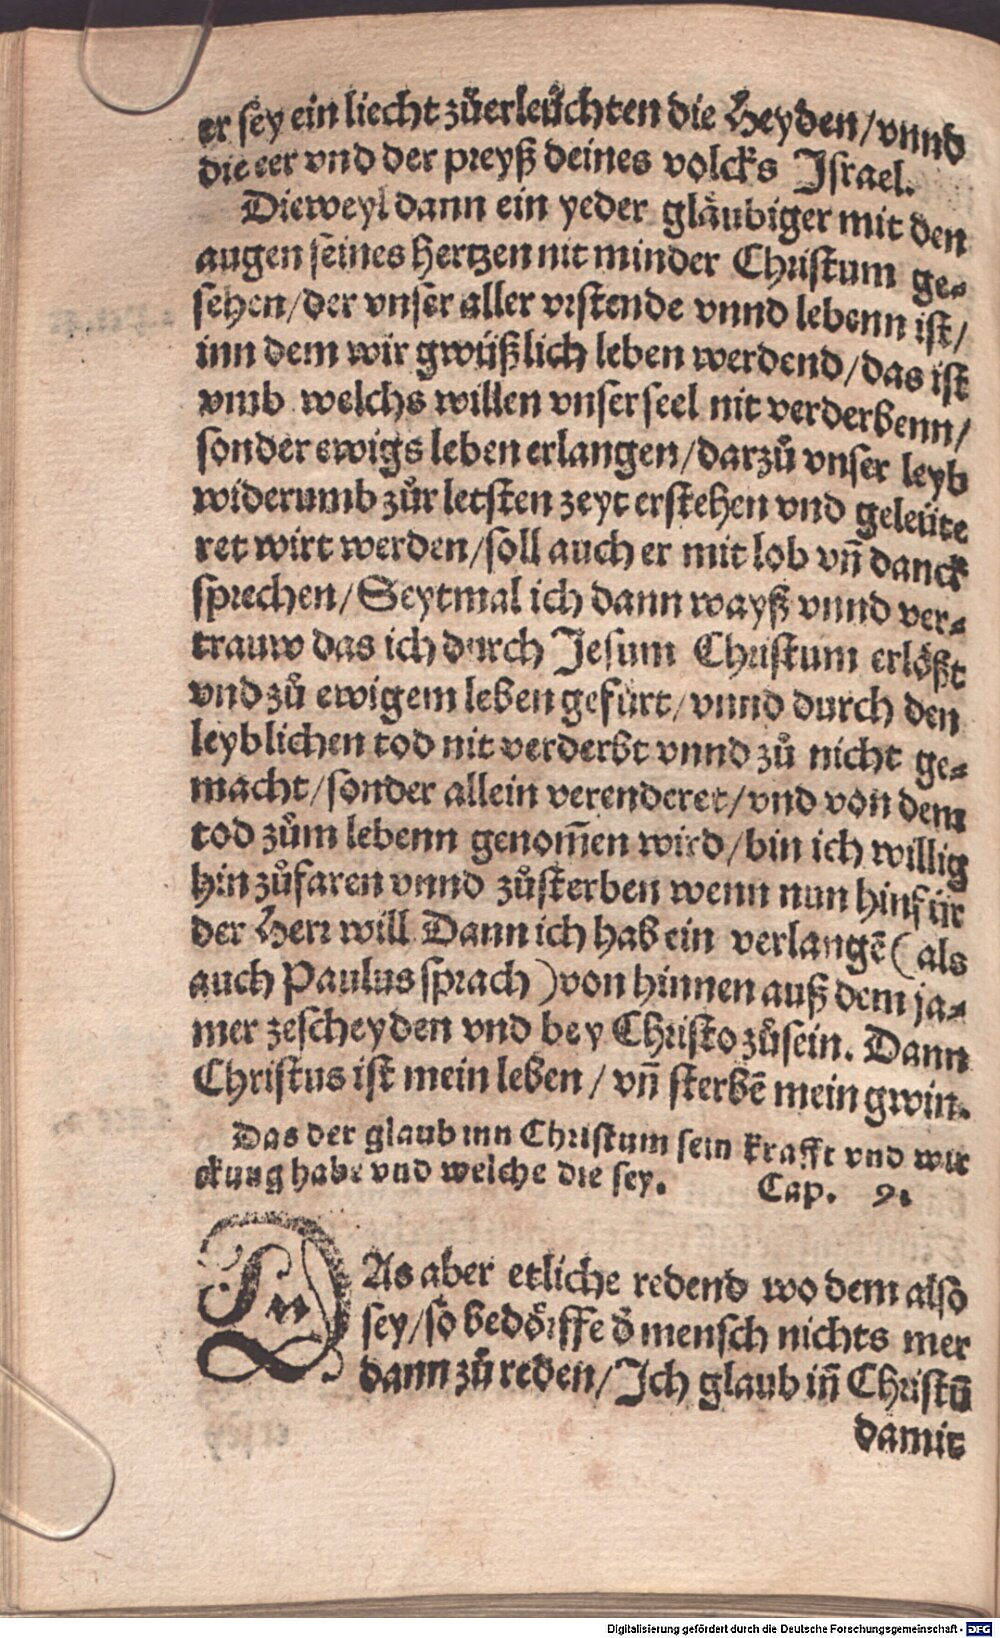 er sey ein liecht zůerleüchten die Heyden/vnnd
die eer vnd der preyß deines volcks Israel.
Dieweyl dann ein yeder gläubiger mit den
augen seines hertzen nit minder Christum ge⸗
sehen/der vnser aller vrstende vnnd lebenn ist/
inn dem wir gwüßlich leben werdend/das ist
vmb welchs willen vnser seel nit verderbenn/
sonder ewigs leben erlangen/darzů vnser leyb
widerumb zůr letsten zeyt erstehen vnd geleüte
ret wirt werden/soll auch er mit lob vñ danck
sprechen/Seytmal ich dann wayß vnnd ver⸗
trauw das ich durch Jesum Christum erlößt
vnd zů ewigem leben gefürt/vnnd durch den
leyblichen tod nit verderbt vnnd zů nicht ge⸗
macht/sonder allein verenderet/vnd von dem
tod zům lebenn genom̃en wird/bin ich willig
hin zůfaren vnnd zůsterben wenn nun hinfür
der Herr will Dann ich hab ein verlangẽ (als
auch Paulus sprach) von hinnen auß dem ja⸗
mer zescheyden vnd bey Christo zůsein. Dann
Christus ist mein leben / vñ sterbẽ mein gwin.
Das der glaub inn Christum sein krafft vnd wir
ckung habe vnd welche die sey. Cap. 9.
DAs aber etliche redend wo dem also
sey/so bedörffe ð mensch nichts mer
dann zů reden/Ich glaub iñ Christũ
damit
Digitalisierung gefördert durch die Deutsche Forschungsgemeinschaft - DFG